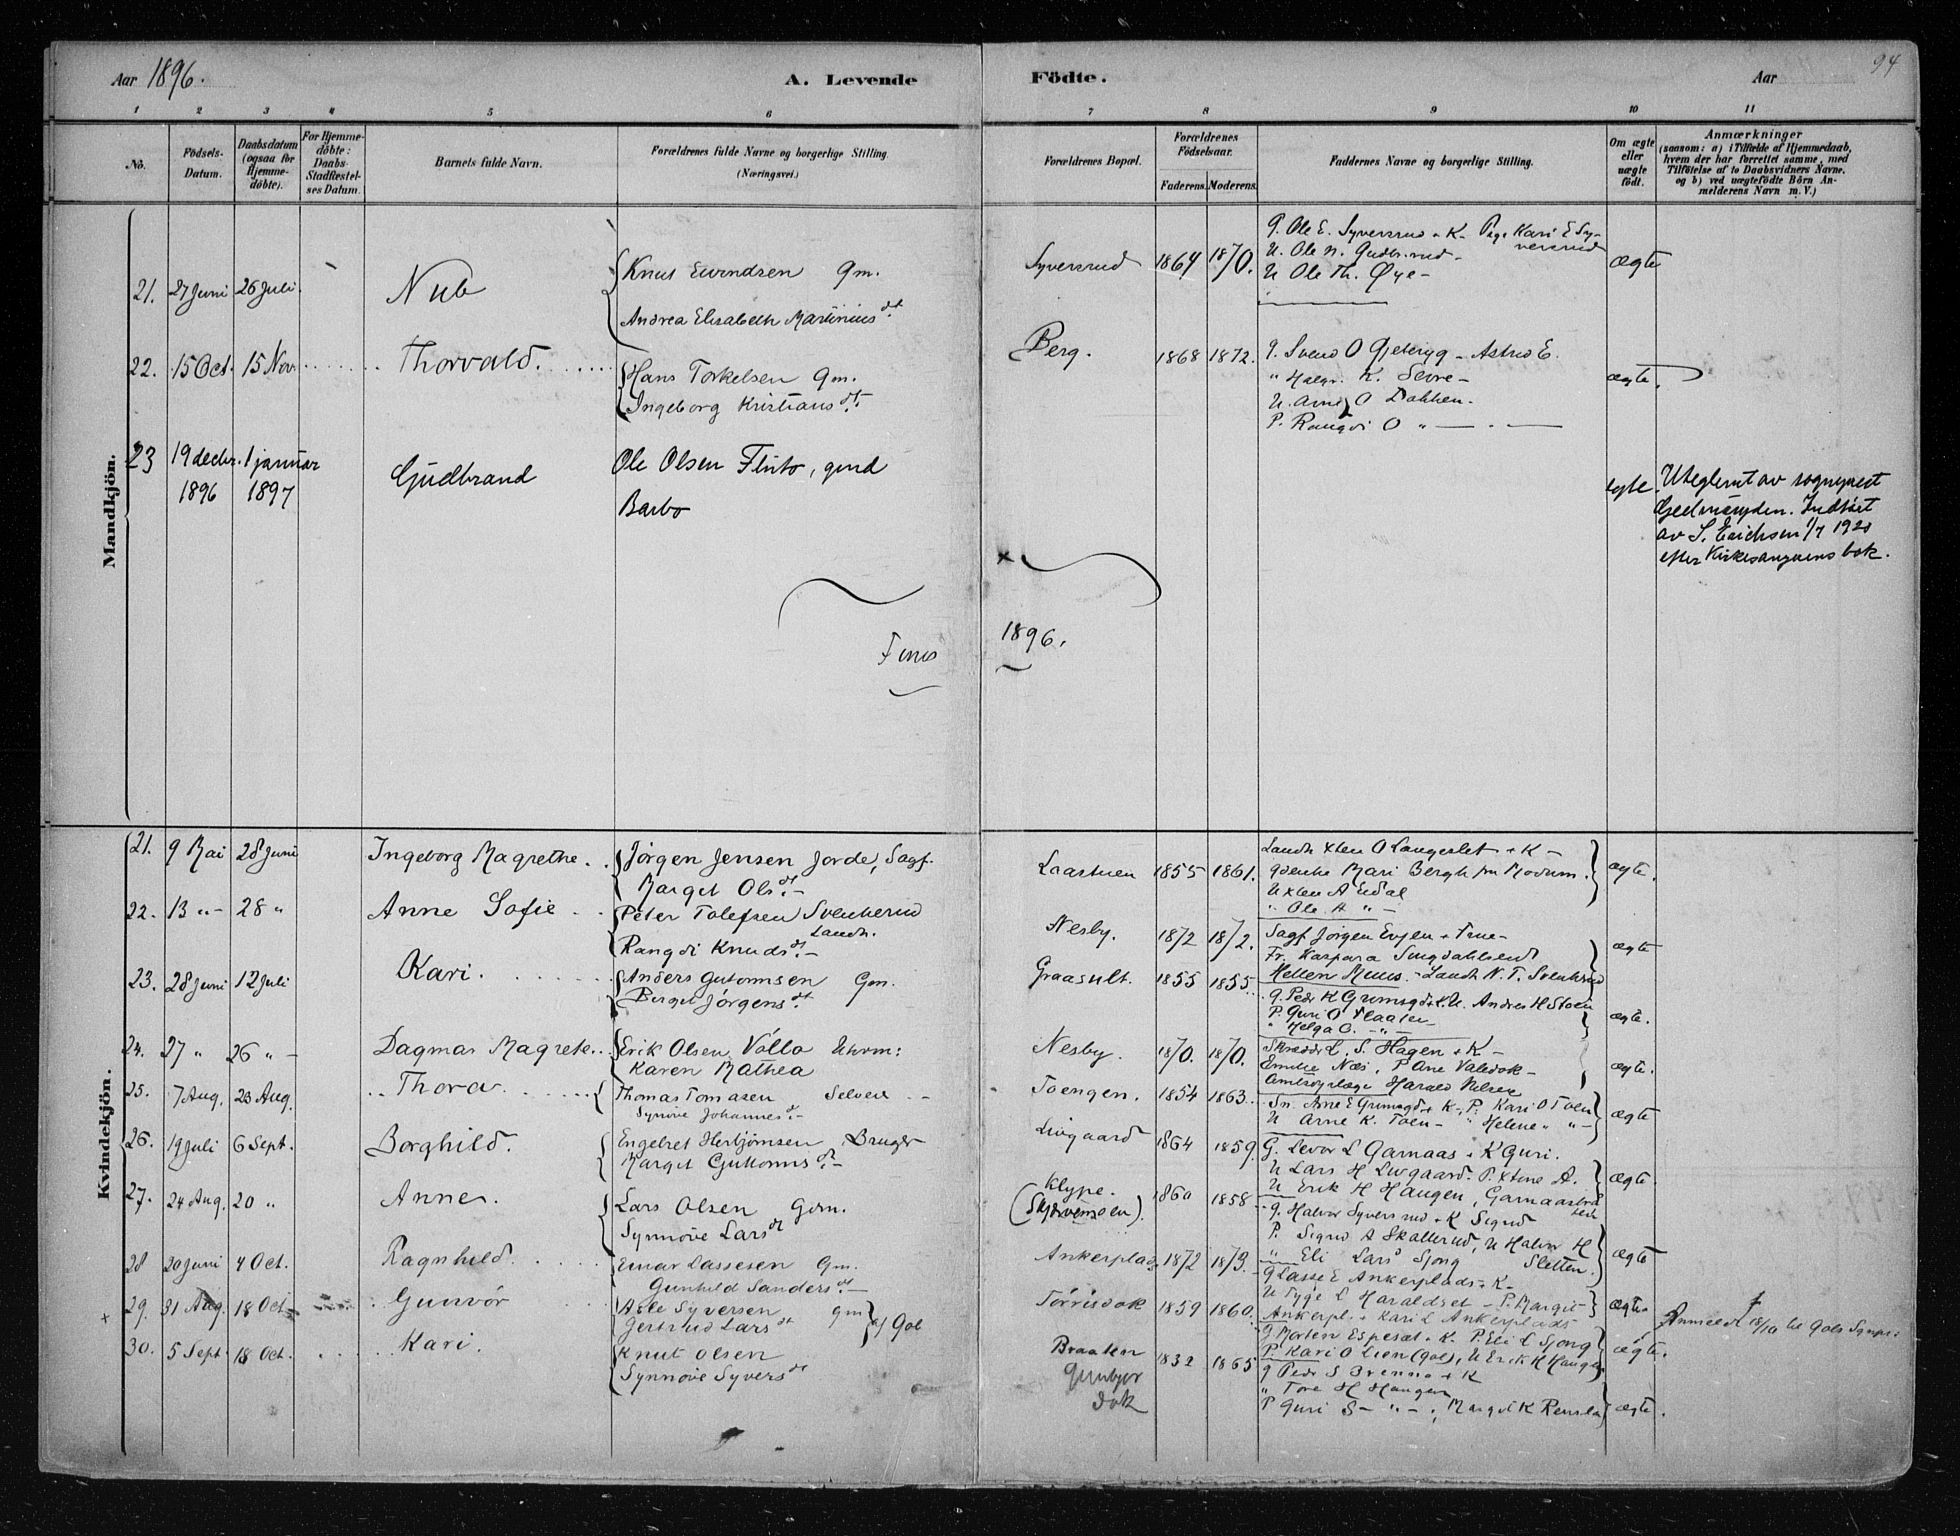 Aar 1896.
A. Levende Födte.
Aar
94
1 2 3 4 5 6 7 8 9 10 11
No.
Födsels-Datum.
Daabsdatum (ogsaa for Hjemme-döbte).
For Hjemme-döbte: Daabs-Stadfæstel-ses Datum.
Barnets fulde Navn.
Forældrenes fulde Navne og borgerlige Stilling. (Næringsvei.)
Forældrenes Bopæl.
Forældrenes Födselsaar.
Faderens. Moderens.
Faddernes Navne og borgerlige Stilling.
Om ægte eller uægte födt.
Anmærkninger
(saasom: a) i Tilfælde af Hjemmedaab, hvem der har forrettet samme, med Tilföielse af to Daabsvidners Navne, og b) ved uægtefödte Börn An-melderens Navn m. V.)
Mandkjön.
21. 27 Juni 26 Juli. Nub Knut Eivindsen Gm. Syversrud 1864 1870. G. Ole E. Syversrud + K. Pige Kari E Sy-versrud ægte
Andrea Elisabeth Martinius dt. U. Ole N. Gudbr.rud -
U Ole Th. Øye -
22. 15 Oct. 15 Nov. Thorvald. Hans Torkelsen Gm. Berg. 1868 1872. G. Svend O Gjeteryg - Astrid E. ægte.
Ingeborg Kristians dt. " Halgr. K. Sevre -
U. Arne O Dokken.
P. Rangdi O " -
23 19 decbr. 1896 1 januar 1897 Gudbrand Ole Olsen Fluto, gmd Barbo egte. Uteglemt av sogneprest
Gedmundsen. Indført
av S. Erichsen 1/7 1920
efter Kirkesangerens bok.
Finis 1896.
Kvindekjön.
21. 9 Mai 28 Juni Ingeborg Magrethe. Jørgen Jensen Jorde, Sagf. Laastuen 1855 1861. Landh. Xten O Langeslet + K - ægte.
Marget Ols dt. - Gdenke Mari Bergh fra Modum.
U Xten A Eidal
" Ole A " -
22. 13 " - 28 " Anne Sofie Peter Tolefsen Svenkerud Landh. Nesby. 1872 1872. Sagf. Jørgen Evjen + Frue - ægte
Rangdi Knuds dt. - Fr. Kaspara Singdahlsend
Hellen Muus. - Landh. N. T. Svenkerud
23. 28 Juni 12 Juli Kari. Anders Guttormsen Gm. Graasult. 1855 1855. G. Peder K Grimsgd + K. U. Anders H Stoen ægte.
Berget Jørgens dt P. Guri O Plaaten
" Helga O. " -
24. 27 " 26 " - Dagmar Magrete. Erik Olsen Vollo Nesby. 1870. 1870. Skrædder L. S. Hagen + K - ægte.
Karen Mathea Emilie Næs, P Ane Valedok -
Amtssygelæge Harald Nilsen
25. 7 Aug. 23 Aug. Thora. Thomas Tomasen Selveier Toengen. 1854 1863. Sn. Arne E Grimsgd + K., P. Kari O Toen ægte
Synøve Johannes dt. - U Arne K. Toen - " Helene " " -
26. 19 Juli 6 Sept. Borghild. Engebret Herbjørnsen Bruger Livgaard 1864 1859. G. Levor L Garnaas + K Guri. ægte.
Marget Guttorms dt. - U Lars H Livgaard. P. Xtine A.
U Erik H Haugen, Garnaastræ
27. 24 Aug. 20 " Anne. Lars Olsen Gdm. Klype. (Skjervemoen). 1860 1858 G. Halvor Syversrud + K Sigrid ægte
Synnøve Lars dt P. Sigrid A Skollerud, U Halvor H Sletten.
" Eli Lars Sjong
28 20 Juni 4 Oct. Ragnhild. Einar Lassesen Gm. Ankerplads 1872 1873. G Lasse E Ankerplads + K -
Gunhild Sanders dt. - U Tyge L Haraldset - P. Margit
Ankerpl. + Kari L Ankerplads
29. 31 Aug. 18 Oct. Gunvor Asle Syversen Gm af Gol Torrisdok 1859 1860. G Morten Espeset + K. P. Eli L Sjong ægte. Anmeldt 18/10 til Gols Sgnpr.
Gertrud Lars dt P. Kari O Lien (Gol), U Erik H Haugen
30. 5 Sept. 18 Oct. Kari. Knut Olsen Braaten Gunbjordok 1832 1865 G Peder S Brenno + K ægte.
Synnøve Syvers dt " Tore H Haugen
P Guri S - " -, Margit K Rensla